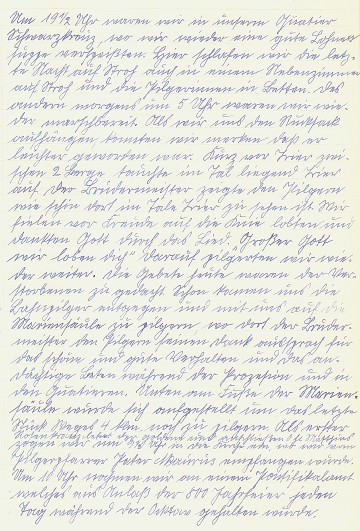 Um 19 1/2 Uhr waren wir in unserm Quatier
Schwarzkreuz, wo wir wieder eine gute Bohnen
suppe verspeißten. Hier schlafen wir die letz-
te Nacht auf Stroh auch in einem Nebenzimmer
auf Stroh und die Pilgerinnen in Betten. Des
andern morgens um 5 Uhr waren wir wie-
der marschbereit. Als wir uns den Rucksack
aufhängen, konnten wir merken daß er
leichter geworden war. Kurz vor Trier zwi-
schen 2 Berge tauchte im Tal liegend Trier
auf. Der Brudermeister zeigte den Pilgern
wie schön dort im Tale Trier zu sehen ist. Wir
fielen vor Freude auf die Knie lobten und
dankten Gott durch das Lied. Großer Gott
wir loben dich" Darauf pilgerten wir wie-
der weiter. Die Gebete heute waren der Ver-
storbenen zu gedacht. Schon kamen uns die
pilger entgegen und mit uns auf die
Mariensäule zu pilgern wo dort der Bruder-
meister den Pilgern seinen Dank aussprach für
das schöne und gute Verhalten und das an-
dächtige Beten während der Prozession und in
den Quatieren. Unten am Fuße der Marien-
säule wurde sich aufgestellt um das letzte
Stück Weges 4 km noch zu pilgern. Als erster
zogen wir um Uhr in die Kirche ein, wo wir vom
Pilgerpfarrer Pater Maurus empfangen wurde.
Um 10 Uhr nahmen wir an einem Pontifikalamt
welches aus Anlaß der 800 Jahrfeier jeden
Tag während der Oktav gehalten wurde.